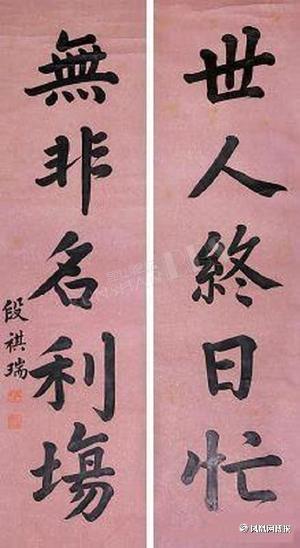 世人終日忙
無非名利塲
段祺瑞
凤凰网博报